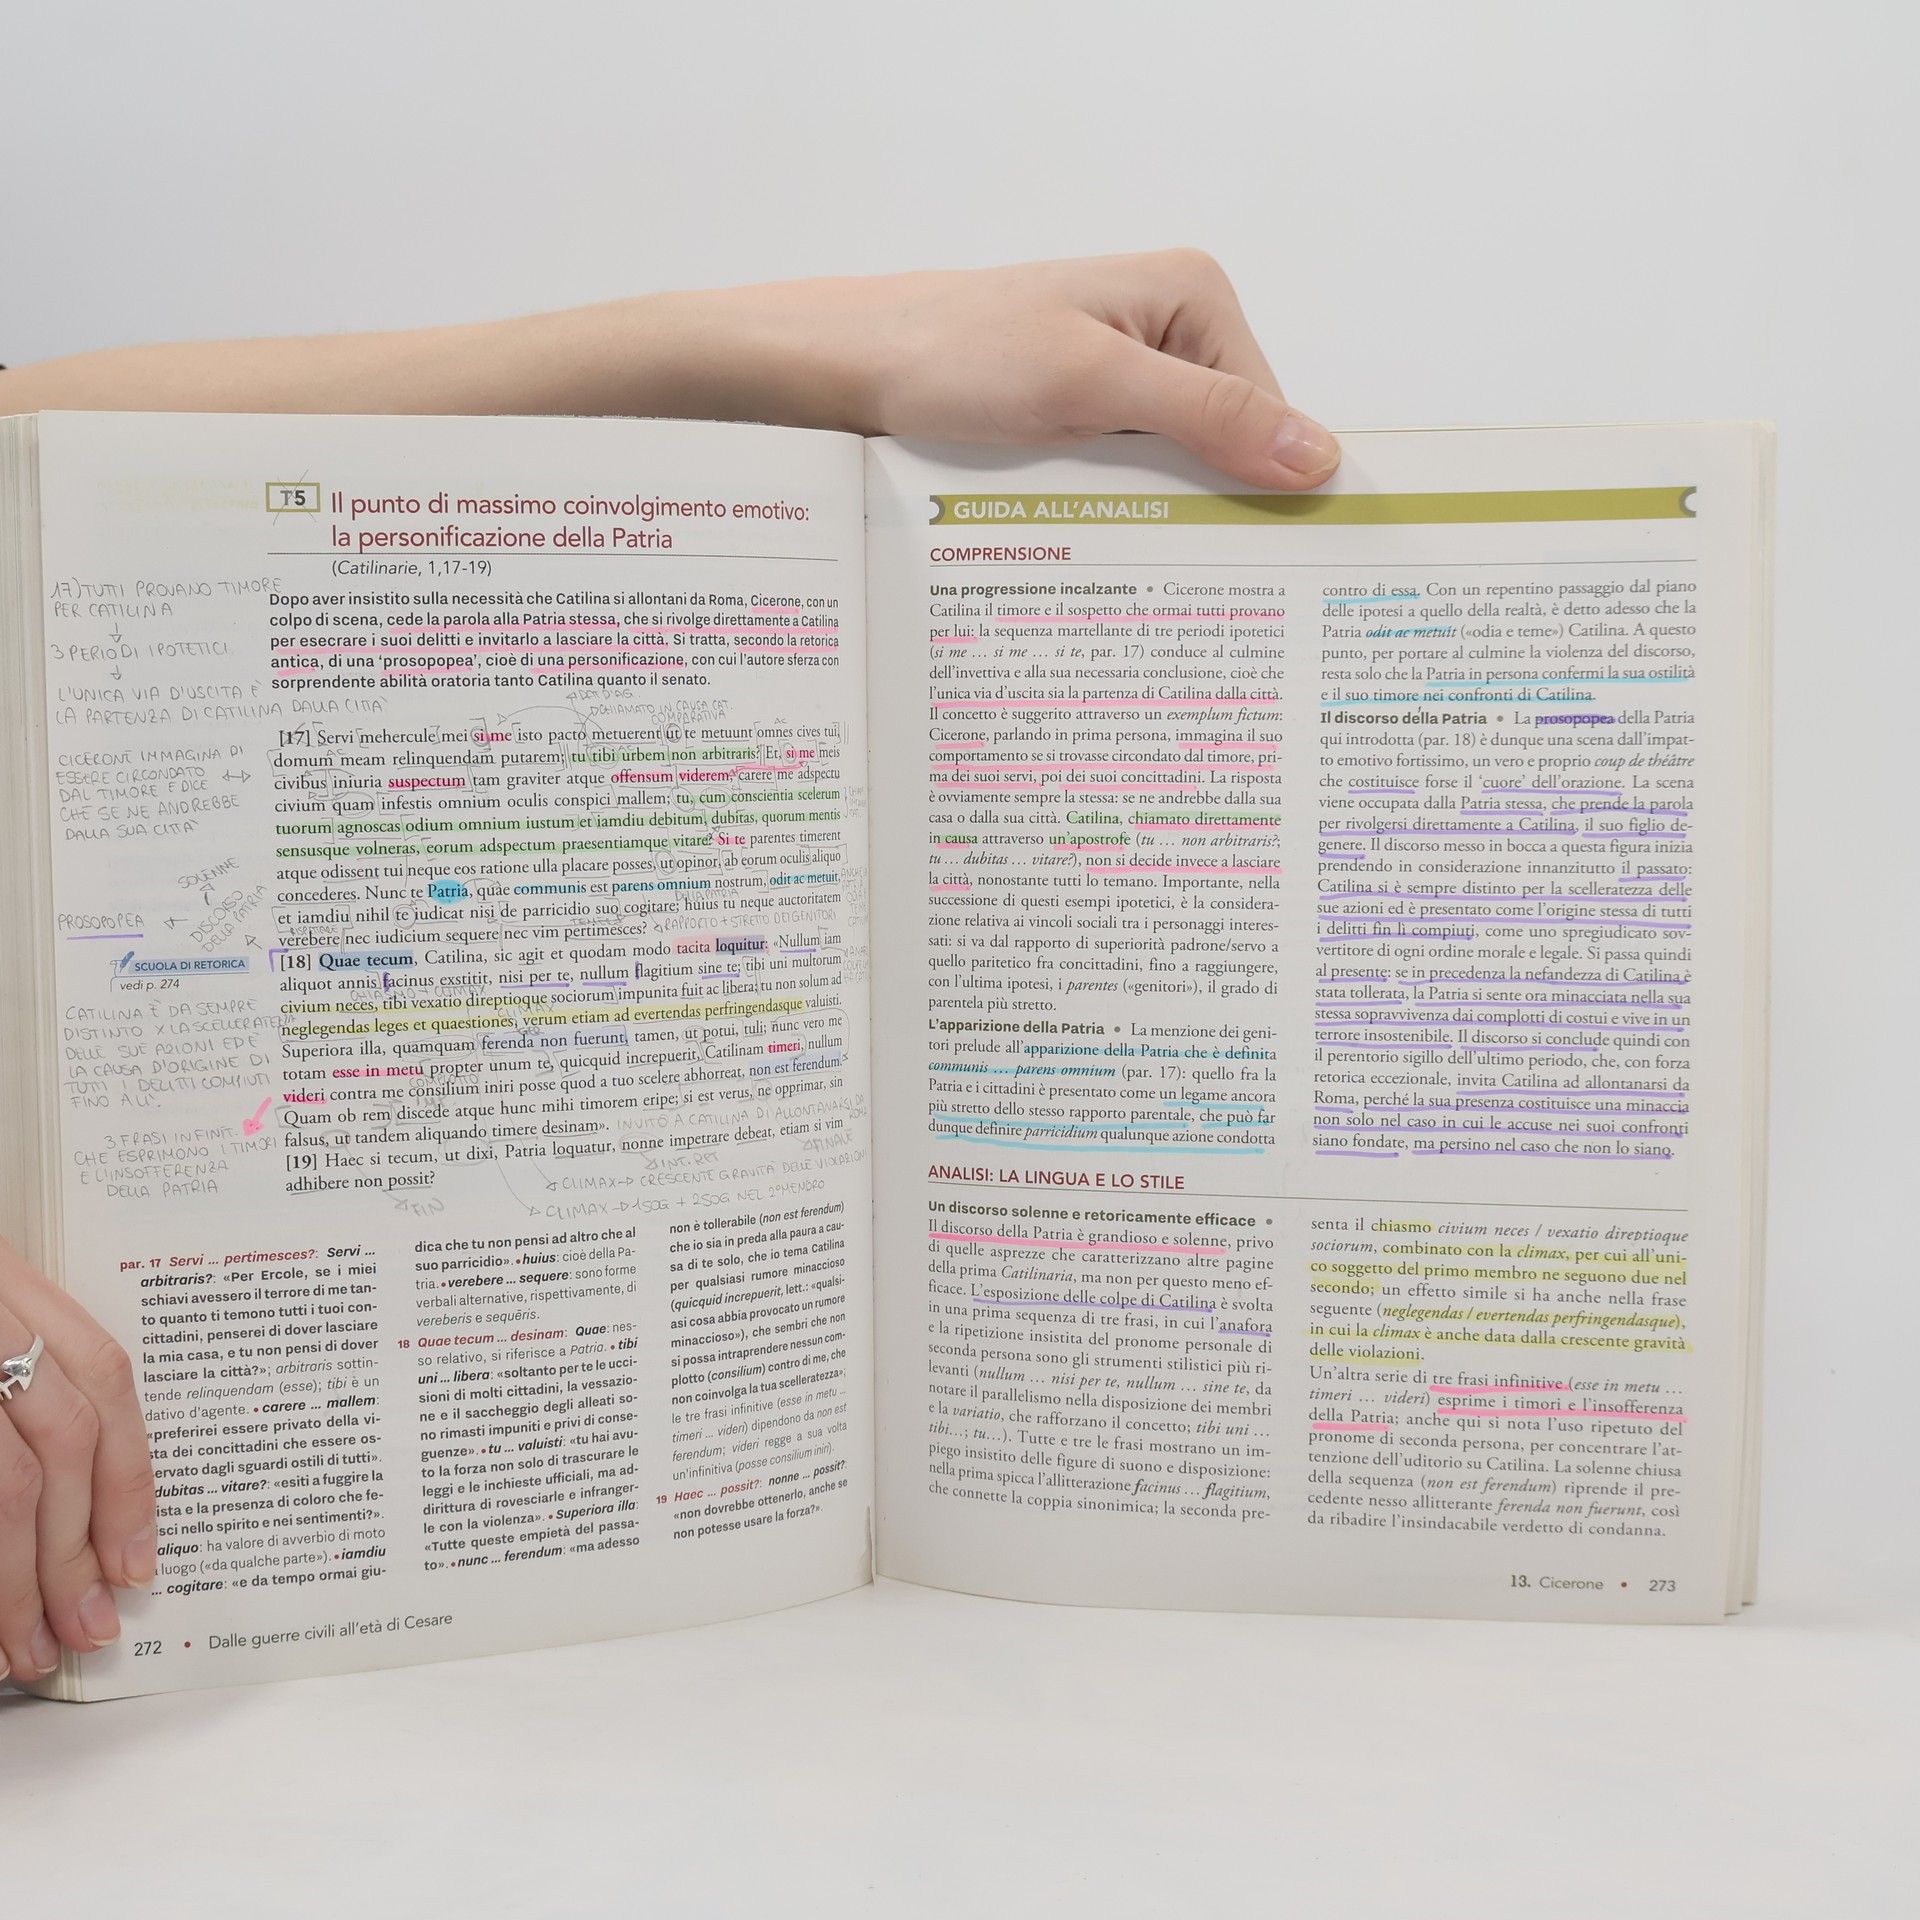 T5
Il punto di massimo coinvolgimento emotivo:
la personificazione della Patria
(Catilinarie, 1,17-19)
Dopo aver insistito sulla necessità che Catilina si allontani da Roma, Cicerone, con un
colpo di scena, cede la parola alla Patria stessa, che si rivolge direttamente a Catilina
per esecrare i suoi delitti e invitarlo a lasciare la città. Si tratta, secondo la retorica
antica, di una ‘prosopopea’, cioè di una personificazione, con cui l'autore sferza con
sorprendente abilità oratoria tanto Catilina quanto il senato.
17) TUTTI PROVANO TIMORE
PER CATILINA
3 PERIODI IPOTETICI
L'UNICA VIA D'USCITA È
LA PARTENZA DI CATILINA DALLA CITTÀ
CICERONE IMMAGINA DI
ESSERE CIRCONDATO
DAL TIMORE E DICE
CHE SE NE ANDREBBE
DALLA SUA CITTÀ
SOLENNE
DISCORSO
DELLA PATRIA
PROSOPOPEA
SCUOLA DI RETORICA
vedi p. 274
CATILINA È DA SEMPRE
DISTINTO X LA SCELLERATEZZA
DELLE SUE AZIONI ED È
LA CAUSA D'ORIGINE DI
TUTTI I DELITTI COMPIUTI
FINO A LÌ.
3 FRASI INFINIT.
CHE ESPRIMONO I TIMORI
E L'INSOFFERENZA
DELLA PATRIA
DAT D'AG.
CHIAMATO IN CAUSA CAT.
COMPARATIVA
[17] Servi mehercule mei si me isto pacto metuerent ut te metuunt omnes cives tui,
domum meam relinquendam putarem; tu tibi urbem non arbitraris? Et, si me meis
civibus iniuria suspectum tam graviter atque offensum viderem, carere me adspectu
civium quam infestis omnium oculis conspici mallem; tu, cum conscientia scelerum
tuorum agnoscas odium omnium iustum et iamdiu debitum, dubitas, quorum mentis
sensusque volneras, eorum adspectum praesentiamque vitare? Si te parentes timerent
atque odissent tui neque eos ratione ulla placare posses, ut opinor, ab eorum oculis aliquo
concederes. Nunc te Patria, quae communis est parens omnium nostrum, odit ac metuit,
et iamdiu nihil te iudicat nisi de parricidio suo cogitare; huius tu neque auctoritatem
verebere nec iudicium sequere nec vim pertimesces?
RAPPORTO + STRETTO DEI GENITORI
[18] Quae tecum, Catilina, sic agit et quodam modo tacita loquitur: «Nullum iam
aliquot annis facinus exstitit, nisi per te, nullum flagitium sine te; tibi uni multorum
civium neces, tibi vexatio direptioque sociorum impunita fuit ac libera; tu non solum ad
neglegendas leges et quaestiones, verum etiam ad evertendas perfringendasque valuisti.
Superiora illa, quamquam ferenda non fuerunt, tamen, ut potui, tuli; nunc vero me
totam esse in metu propter unum te, quicquid increpuerit, Catilinam timeri, nullum
videri contra me consilium iniri posse quod a tuo scelere abhorreat, non est ferendum.
Quam ob rem discede atque hunc mihi timorem eripe; si est verus, ne opprimar, sin
falsus, ut tandem aliquando timere desinam». INVITO A CATILINA DI ALLONTANARSI DA ROMA
[19] Haec si tecum, ut dixi, Patria loquatur, nonne impetrare debeat, etiam si vim
adhibere non possit?
CHIASMO + CLIMAX
CLIMAX
COMPLOTTO
FINALE
INT. RET
FIN
CLIMAX → CRESCENTE GRAVITÀ DELLE VIOLAZIONI
CLIMAX → 1 SOG + 2 SOG NEL 2° MEMBRO
par. 17 Servi ... pertimesces?: Servi ...
arbitraris?: «Per Ercole, se i miei
schiavi avessero il terrore di me tan-
to quanto ti temono tutti i tuoi con-
cittadini, penserei di dover lasciare
la mia casa, e tu non pensi di dover
lasciare la città?»; arbitraris sottin-
tende relinquendam (esse); tibi è un
dativo d'agente. • carere ... mallem:
«preferirei essere privato della vi-
sta dei concittadini che essere os-
servato dagli sguardi ostili di tutti».
dubitas ... vitare?: «esiti a fuggire la
ista e la presenza di coloro che fe-
isci nello spirito e nei sentimenti?».
aliquo: ha valore di avverbio di moto
luogo («da qualche parte»). • iamdiu
... cogitare: «e da tempo ormai giu-
dica che tu non pensi ad altro che al
suo parricidio». • huius: cioè della Pa-
tria. • verebere ... sequere: sono forme
verbali alternative, rispettivamente, di
vereberis e sequēris.
18 Quae tecum ... desinam: Quae: nes-
so relativo, si riferisce a Patria. • tibi
uni ... libera: «soltanto per te le ucci-
sioni di molti cittadini, la vessazio-
ne e il saccheggio degli alleati so-
no rimasti impuniti e privi di conse-
guenze». • tu ... valuisti: «tu hai avu-
to la forza non solo di trascurare le
leggi e le inchieste ufficiali, ma ad-
dirittura di rovesciarle e infranger-
le con la violenza». • Superiora illa:
«Tutte queste empietà del passa-
to». • nunc ... ferendum: «ma adesso
non è tollerabile (non est ferendum)
che io sia in preda alla paura a cau-
sa di te solo, che io tema Catilina
per qualsiasi rumore minaccioso
(quicquid increpuerit, lett.: «qualsi-
asi cosa abbia provocato un rumore
minaccioso»), che sembri che non
si possa intraprendere nessun com-
plotto (consilium) contro di me, che
non coinvolga la tua scelleratezza»;
le tre frasi infinitive (esse in metu ...
timeri ... videri) dipendono da non est
ferendum; videri regge a sua volta
un'infinitiva (posse consilium iniri).
19 Haec ... possit?: nonne ... possit?:
«non dovrebbe ottenerlo, anche se
non potesse usare la forza?».
272 • Dalle guerre civili all'età di Cesare
GUIDA ALL'ANALISI
COMPRENSIONE
Una progressione incalzante • Cicerone mostra a
Catilina il timore e il sospetto che ormai tutti provano
per lui: la sequenza martellante di tre periodi ipotetici
(si me ... si me ... si te, par. 17) conduce al culmine
dell'invettiva e alla sua necessaria conclusione, cioè che
l'unica via d'uscita sia la partenza di Catilina dalla città.
Il concetto è suggerito attraverso un exemplum fictum:
Cicerone, parlando in prima persona, immagina il suo
comportamento se si trovasse circondato dal timore, pri-
ma dei suoi servi, poi dei suoi concittadini. La risposta
è ovviamente sempre la stessa: se ne andrebbe dalla sua
casa o dalla sua città. Catilina, chiamato direttamente
in causa attraverso un'apostrofe (tu ... non arbitraris?;
tu ... dubitas ... vitare?), non si decide invece a lasciare
la città, nonostante tutti lo temano. Importante, nella
successione di questi esempi ipotetici, è la considera-
zione relativa ai vincoli sociali tra i personaggi interes-
sati: si va dal rapporto di superiorità padrone/servo a
quello paritetico fra concittadini, fino a raggiungere,
con l'ultima ipotesi, i parentes («genitori»), il grado di
parentela più stretto.
L'apparizione della Patria • La menzione dei geni-
tori prelude all'apparizione della Patria che è definita
communis ... parens omnium (par. 17): quello fra la
Patria e i cittadini è presentato come un legame ancora
più stretto dello stesso rapporto parentale, che può far
dunque definire parricidium qualunque azione condotta
contro di essa. Con un repentino passaggio dal piano
delle ipotesi a quello della realtà, è detto adesso che la
Patria odit ac metuit («odia e teme») Catilina. A questo
punto, per portare al culmine la violenza del discorso,
resta solo che la Patria in persona confermi la sua ostilità
e il suo timore nei confronti di Catilina.
Il discorso della Patria • La prosopopea della Patria
qui introdotta (par. 18) è dunque una scena dall'impat-
to emotivo fortissimo, un vero e proprio coup de théâtre
che costituisce forse il ‘cuore’ dell'orazione. La scena
viene occupata dalla Patria stessa, che prende la parola
per rivolgersi direttamente a Catilina, il suo figlio de-
genere. Il discorso messo in bocca a questa figura inizia
prendendo in considerazione innanzitutto il passato:
Catilina si è sempre distinto per la scelleratezza delle
sue azioni ed è presentato come l'origine stessa di tutti
i delitti fin lì compiuti, come uno spregiudicato sov-
vertitore di ogni ordine morale e legale. Si passa quindi
al presente: se in precedenza la nefandezza di Catilina è
stata tollerata, la Patria si sente ora minacciata nella sua
stessa sopravvivenza dai complotti di costui e vive in un
terrore insostenibile. Il discorso si conclude quindi con
il perentorio sigillo dell'ultimo periodo, che, con forza
retorica eccezionale, invita Catilina ad allontanarsi da
Roma, perché la sua presenza costituisce una minaccia
non solo nel caso in cui le accuse nei suoi confronti
siano fondate, ma persino nel caso che non lo siano.
ANALISI: LA LINGUA E LO STILE
Un discorso solenne e retoricamente efficace •
Il discorso della Patria è grandioso e solenne, privo
di quelle asprezze che caratterizzano altre pagine
della prima Catilinaria, ma non per questo meno ef-
ficace. L'esposizione delle colpe di Catilina è svolta
in una prima sequenza di tre frasi, in cui l'anafora
e la ripetizione insistita del pronome personale di
seconda persona sono gli strumenti stilistici più ri-
levanti (nullum ... nisi per te, nullum ... sine te, da
notare il parallelismo nella disposizione dei membri
e la variatio, che rafforzano il concetto; tibi uni ...
tibi...; tu...). Tutte e tre le frasi mostrano un im-
piego insistito delle figure di suono e disposizione:
nella prima spicca l'allitterazione facinus ... flagitium,
che connette la coppia sinonimica; la seconda pre-
senta il chiasmo civium neces / vexatio direptioque
sociorum, combinato con la climax, per cui all'uni-
co soggetto del primo membro ne seguono due nel
secondo; un effetto simile si ha anche nella frase
seguente (neglegendas / evertendas perfringendasque),
in cui la climax è anche data dalla crescente gravità
delle violazioni.
Un'altra serie di tre frasi infinitive (esse in metu ...
timeri ... videri) esprime i timori e l'insofferenza
della Patria; anche qui si nota l'uso ripetuto del
pronome di seconda persona, per concentrare l'at-
tenzione dell'uditorio su Catilina. La solenne chiusa
della sequenza (non est ferendum) riprende il pre-
cedente nesso allitterante ferenda non fuerunt, così
da ribadire l'insindacabile verdetto di condanna.
13. Cicerone • 273